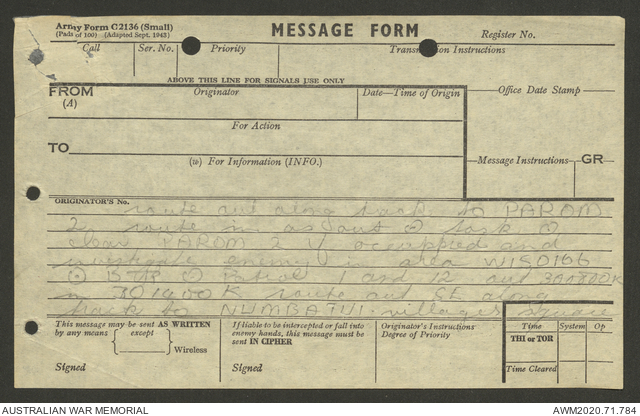 Army Form C2136 (Small)
(Pads of 100) (Adapted Sept. 1943)
MESSAGE FORM
Register No.
Call
Ser. No.
Priority
Transmission Instructions
ABOVE THIS LINE FOR SIGNALS USE ONLY
FROM
(A)
Originator
Date—Time of Origin
Office Date Stamp
For Action
TO
(w) For Information (INFO.)
Message Instructions
GR
ORIGINATOR'S No.
route out along track to PAROM
2 route in as out ⊙ task ⊙
clear PAROM 2 if occupied and
investigate enemy in area
⊙ patrol 1 and 12 out 300800K
in 301400K route out SE along
track to villages square
This message may be sent AS WRITTEN
by any means except
Wireless
Signed
If liable to be intercepted or fall into
enemy hands, this message must be
sent IN CIPHER
Signed
Originator's Instructions
Degree of Priority
Time
System
Op
THI or TOR
Time Cleared
AUSTRALIAN WAR MEMORIAL
AWM2020.71.784